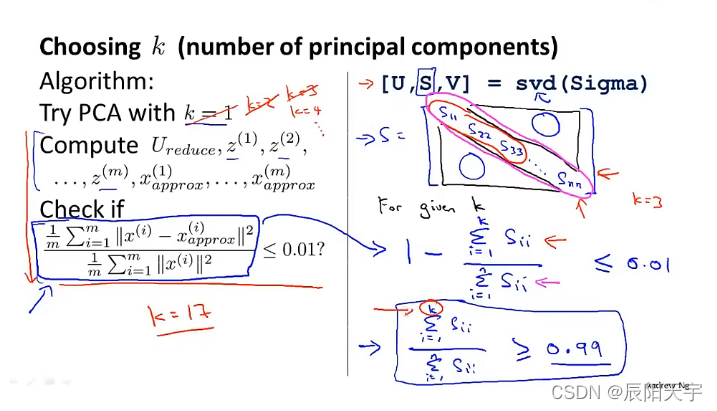 Choosing k (number of principal components)
Algorithm:
Try PCA with k = 1 k=2 k=3
k=4
Compute U_reduce, z^(1), z^(2),
..., z^(m), x_approx^(1), ..., x_approx^(m)
Check if
\frac{\frac{1}{m} \sum_{i=1}^{m} ‖x^(i) − x_approx^(i)‖^2}{\frac{1}{m} \sum_{i=1}^{m} ‖x^(i)‖^2} ≤ 0.01?
k = 17
→ [U,S,V] = svd(Sigma)
→ S = S11 S22 S33 ... Snn
k=3
For given k
1 − \frac{\sum_{i=1}^{k} Sii}{\sum_{i=1}^{n} Sii} ≤ 0.01
→ \frac{\sum_{i=1}^{k} Sii}{\sum_{i=1}^{n} Sii} ≥ 0.99
Andrew Ng
CSDN @辰阳天宇